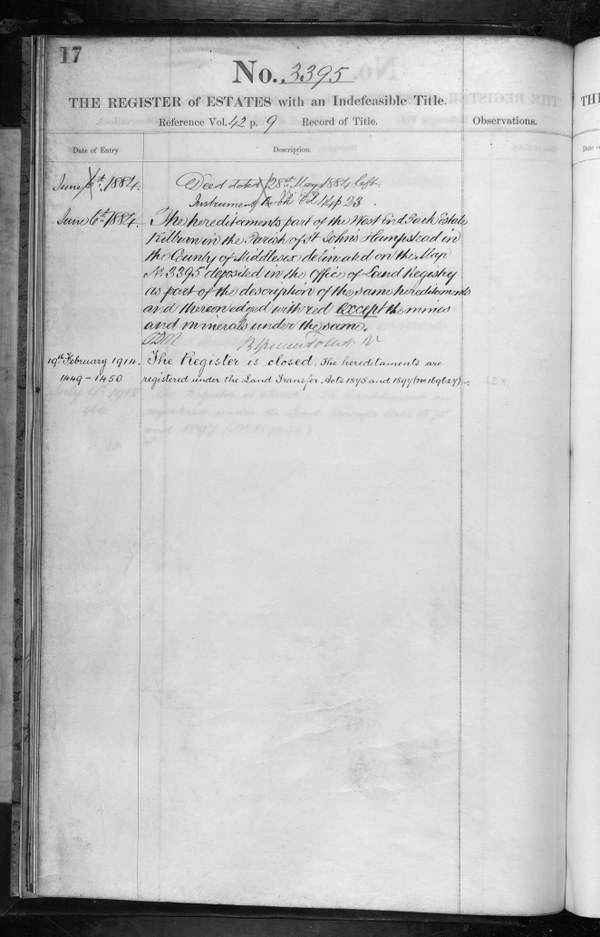 17
No. 3395
THE REGISTER of ESTATES with an Indefeasible Title.
Reference Vol. 42 p. 9 Record of Title.
Observations.
Date of Entry
Description.
June 6th, 1884. Deed dated 28th May 1884 left.
Instrument Vol 14 p 23.
June 6th 1884. The hereditaments part of the West End Park Estate
Kilburn in the Parish of St John's Hampstead in
the County of Middlesex delineated on the Map
No 3395 deposited in the Office of Land Registry
as part of the description of the same hereditaments
and thereon edged with red except the mines
and minerals under the same.
19th February 1914. The Register is closed. The hereditaments are
1449 - 1450 registered under the Land Transfer Acts 1875 and 1897
THE